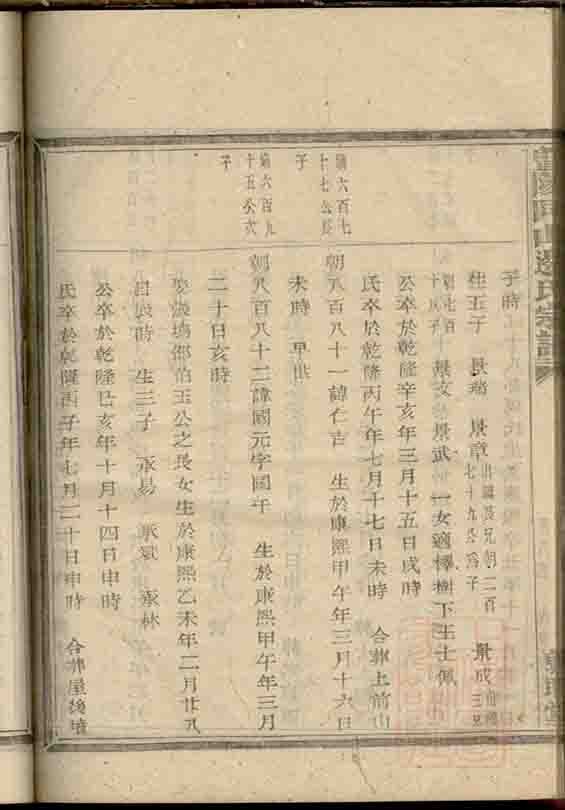 子時
生五子 景瑞 景章 出繼長兄朝二百七十九公為子 景成
朝七百 十公子 景文 景武 一女適樟樹下王士佩
公卒於乾隆辛亥年三月十五日戌時
氏卒於乾隆丙午年七月十七日未時 合葬上前山
第六百七十七公長子
朝八百八十一諱仁吉 生於康熙甲午年三月十六日
未時 早世
第六百九十五公次子
朝八百八十二諱國元字國午 生於康熙甲午年三月
二十日亥時
娶後塢邵伯玉公之長女生於康熙乙未年二月廿八
日辰時 生三子 承易 承斌 承林
公卒於乾隆己亥年十月十四日申時
氏卒於乾隆丙子年七月二十日申時 合葬屋後塘